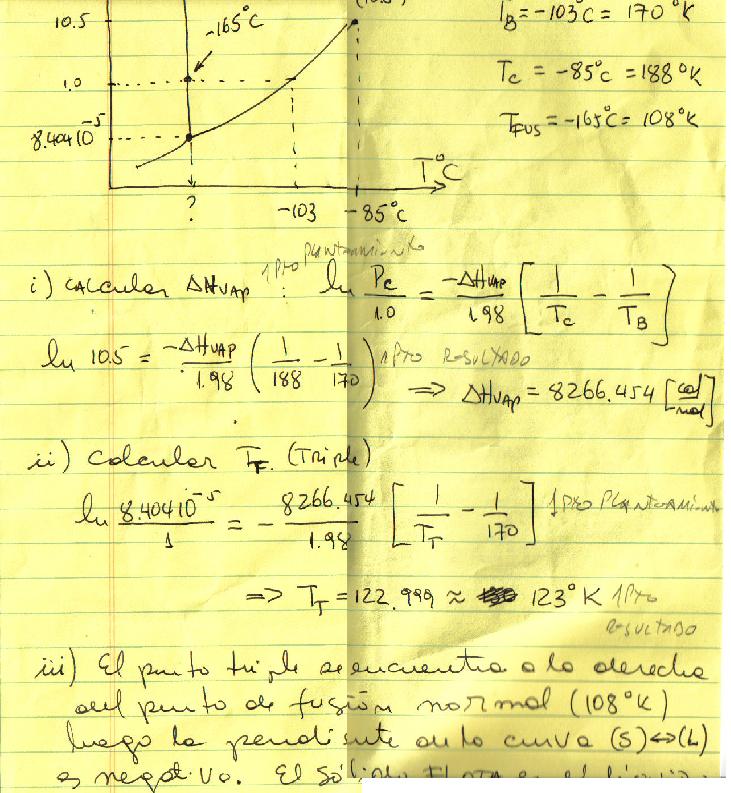 10.5
-165°C
T_B = -103°C = 170 °K
1.0
T_C = -85°C = 188 °K
8.404 10^-5
T_FUS = -165°C = 108 °K
T°C
? -103 -85°C
1 Pto Planteamiento
i) Calcular ΔH_VAP : ln P_C/1.0 = -ΔH_VAP/1.98 [1/T_C - 1/T_B]
ln 10.5 = -ΔH_VAP/1.98 (1/188 - 1/170) 1 Pto RESULTADO
⇒ ΔH_VAP = 8266.454 [cal/mol]
ii) Calcular T_T. (Triple)
ln 8.404 10^-5/1 = - 8266.454/1.98 [1/T_T - 1/170] 1 Pto Planteamiento
⇒ T_T = 122.999 ≈ 123°K 1 Pto
RESULTADO
iii) El punto triple se encuentra a la derecha
del punto de fusión normal (108°K)
luego la pendiente de la curva (S)↔(L)
es negativa. El Sólido